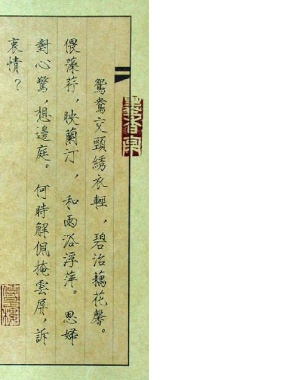 鴛鴦交頸綉衣輕，碧沼藕花馨。
偎藻荇，映蘭汀，和雨浴浮萍。　思婦
對心驚，想邊庭。何時解佩掩雲屏，訴
衷情？